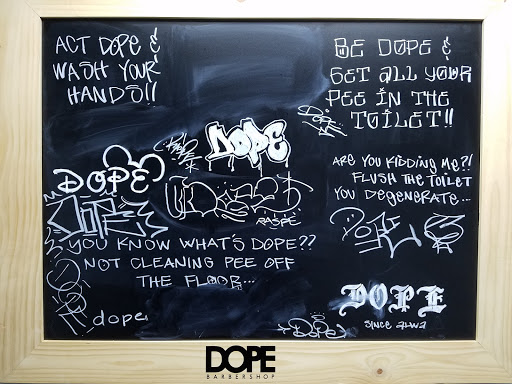 ACT DOPE &
WASH YOUR
HANDS!!
BE DOPE &
GET ALL YOUR
PEE IN THE
TOILET!!
DOPE
DOPE
ARE YOU KIDDING ME?!
FLUSH THE TOILET
YOU DEGENERATE...
DOPE
RASPE
YOU KNOW WHAT'S DOPE??
NOT CLEANING PEE OFF
THE FLOOR...
DOPE
SINCE
dope
DOPE
DOPE
BARBERSHOP